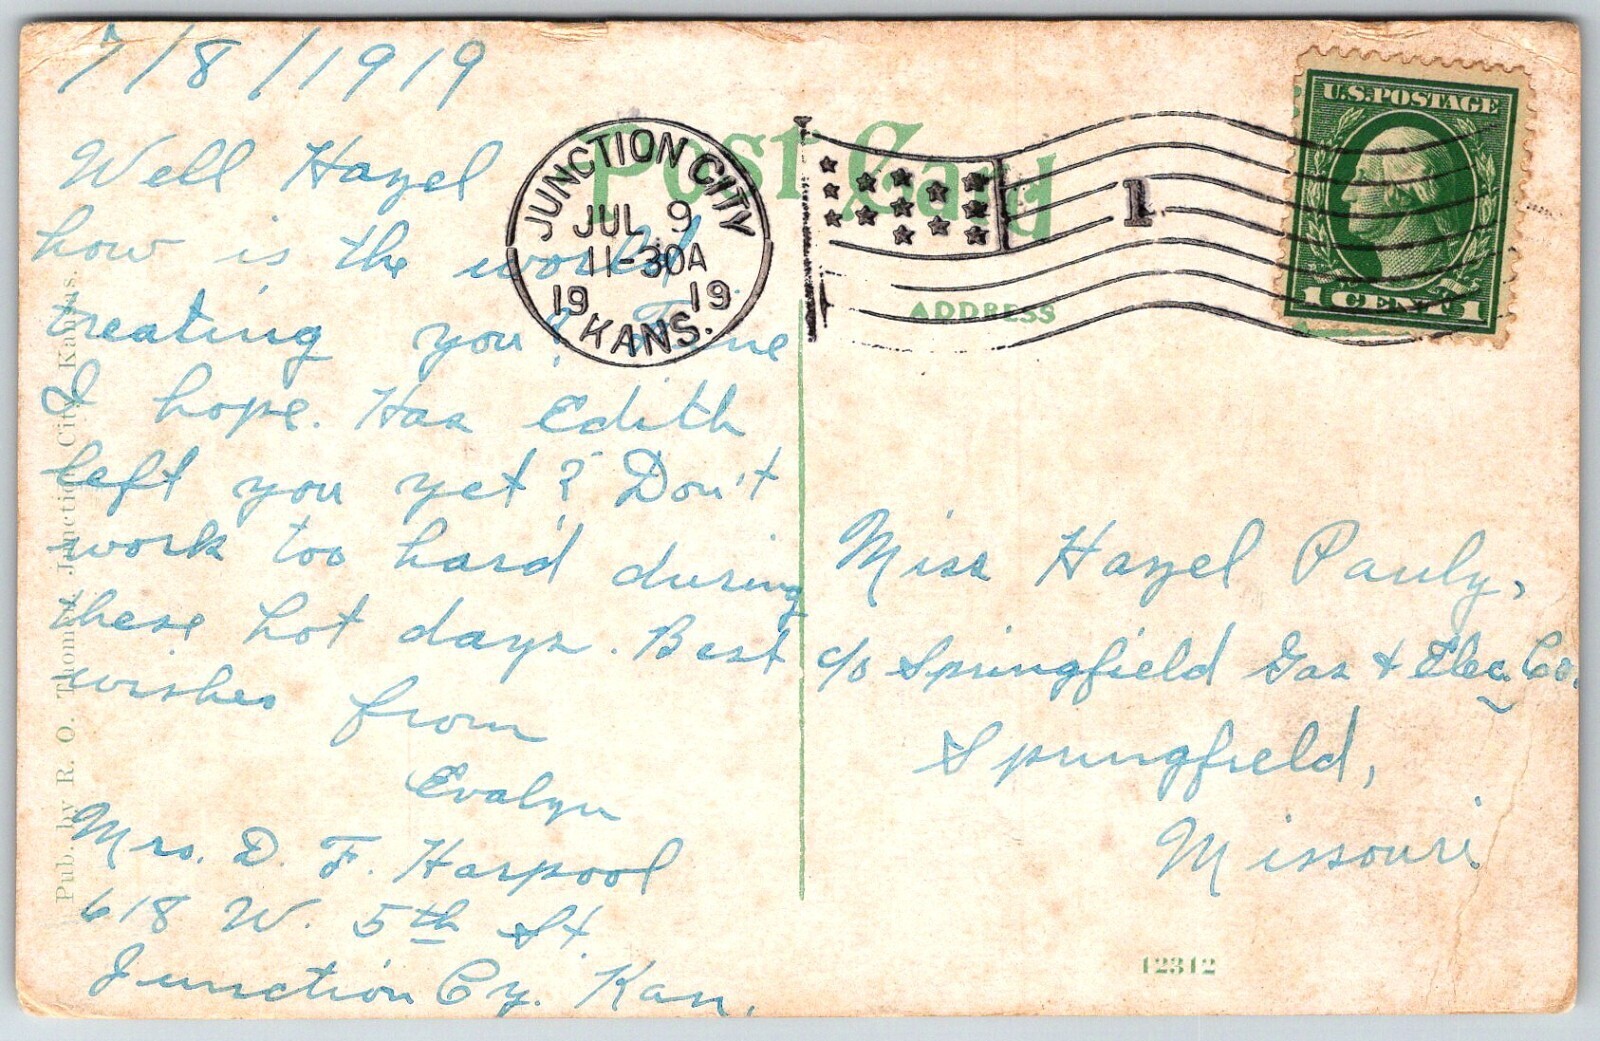 7/8/1919
Well Hazel
how is the world
treating you? Fine
I hope. Has Edith
left you yet? Don't
work too hard during
these hot days. Best
wishes from
Evalyn
Mrs. D. F. Harpool
618 W. 5th St.
Junction Cy. Kan.
Pub. by R. O. Thomen, Junction City, Kansas.
Post Card
JUNCTION CITY
JUL 9
11-30A
1919
KANS.
1
U.S.POSTAGE
1 CENT 1
ADDRESS
Miss Hazel Pauly,
c/o Springfield Gas & Elec. Co.
Springfield,
Missouri.
12312